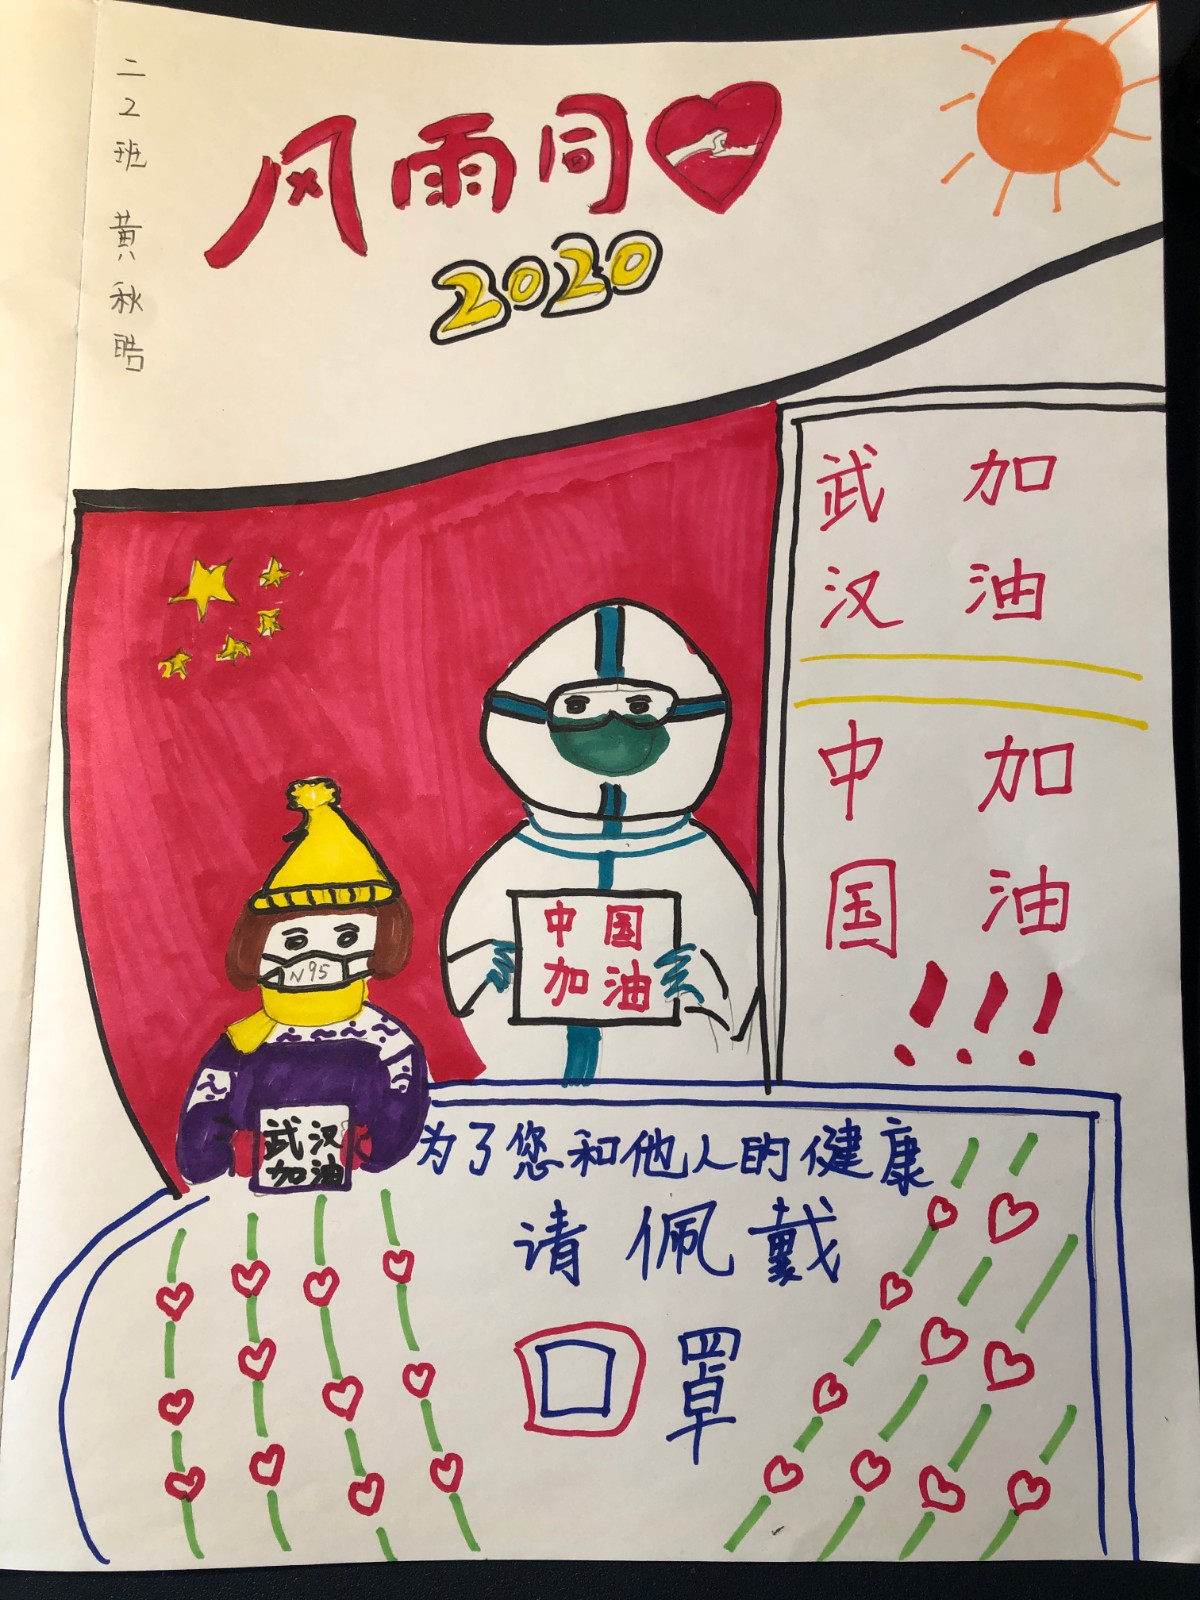 二2班 黄秋
风雨同
2020
武汉
加油
中国
加油
!!!
中国
加油
N95
武汉
加油
为了您和他人的健康
请佩戴
口罩